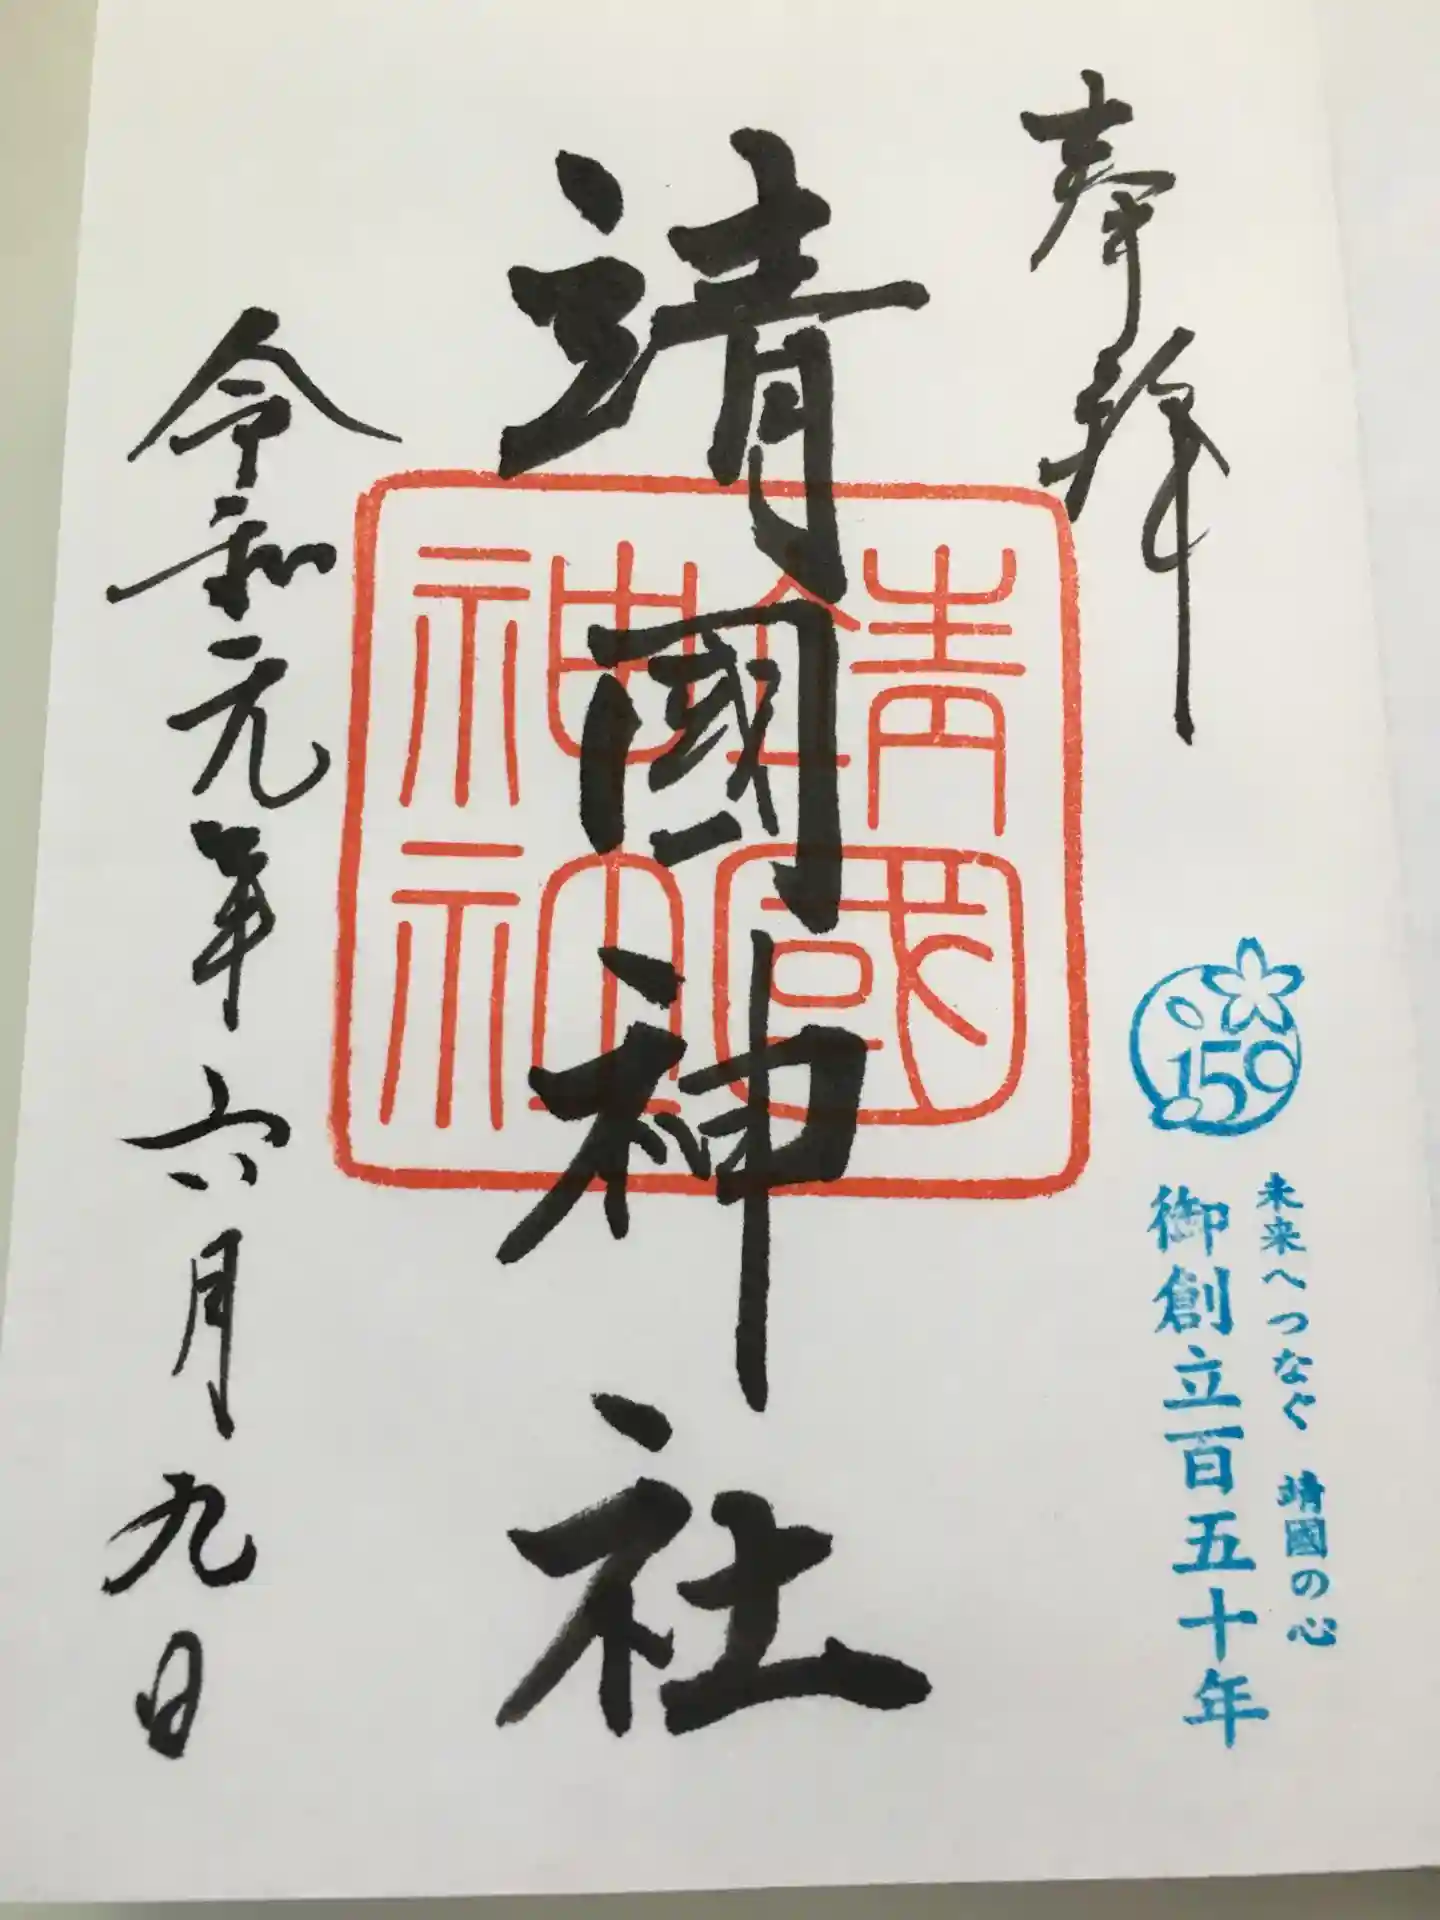 奉拝
150
未来へつなぐ 靖國の心
御創立百五十年
靖國神社
靖國
神社
令和元年六月九日